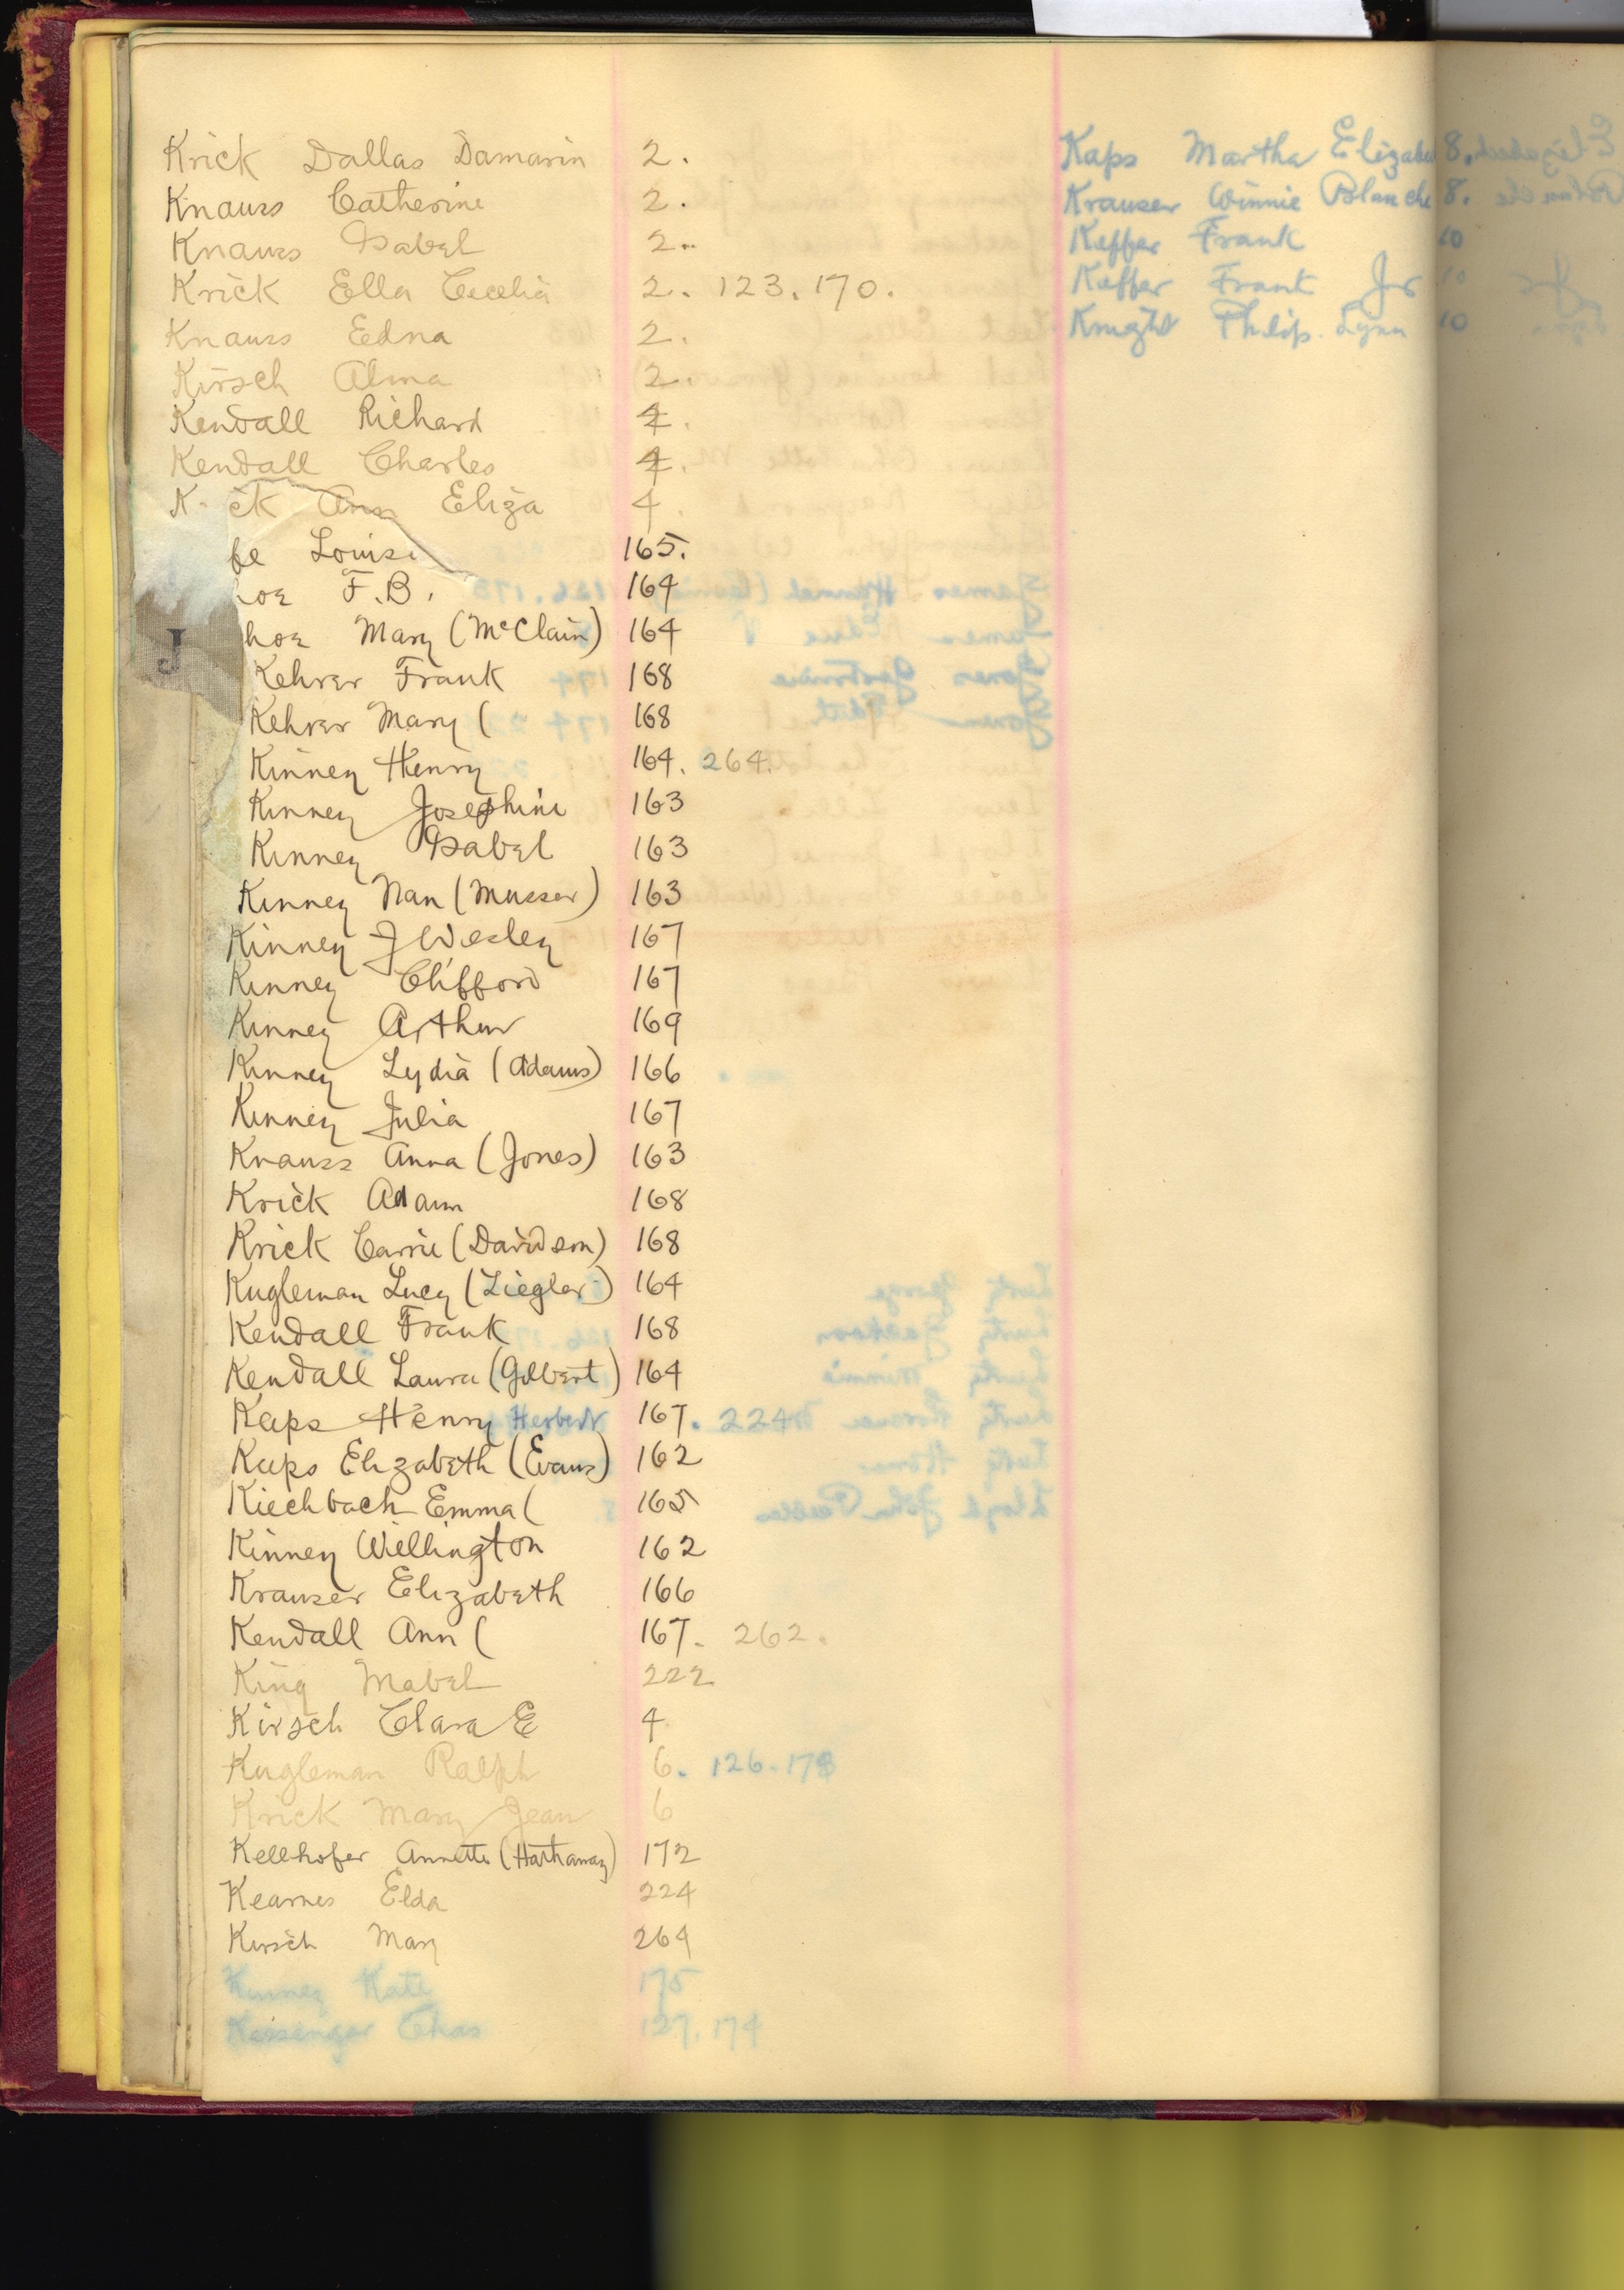 Krick Dallas Damarin 2.
Knauss Catherine 2.
Knauss Isabel 2.
Krick Ella Cecelia 2. 123. 170.
Knauss Edna 2.
Kirsch Alma 2.
Kendall Richard 4.
Kendall Charles 4.
K ck Ann Eliza 4.
be Louise 165.
hoe F.B. 164
hoe Mary (McClain) 164
J
Kehrer Frank 168
Kehrer Mary ( 168
Kinney Henry 164. 264.
Kinney Josephine 163
Kinney Isabel 163
Kinney Nan (Musser) 163
Kinney J Wesley 167
Kinney Clifford 167
Kinney Arthur 169
Kinney Lydia (Adams) 166
Kinney Julia 167
Knauss Anna (Jones) 163
Krick Adam 168
Krick Carrie (Davidson) 168
Kugleman Lucy (Ziegler) 164
Kendall Frank 168
Kendall Laura (Gilbert) 164
Kaps Henry Herbert 167. 224
Kaps Elizabeth (Evans) 162
Kiechbach Emma ( 165
Kinney Wellington 162
Krauser Elizabeth 166
Kendall Ann ( 167. 262.
King Mabel 222
Kirsch Clara E 4
Kugleman Ralph 6. 126. 178
Krick Mary Jean 6
Kellhofer Annette (Hathaway) 172
Kearnes Elda 224
Kirsch Mary 264
Kinney Kate 175
Kissenger Chas 127. 174
Kaps Martha Elizabe 8.
Krauser Winnie Blanche 8.
Keffer Frank 10
Keffer Frank Jr 10
Knight Philip Lynn 10